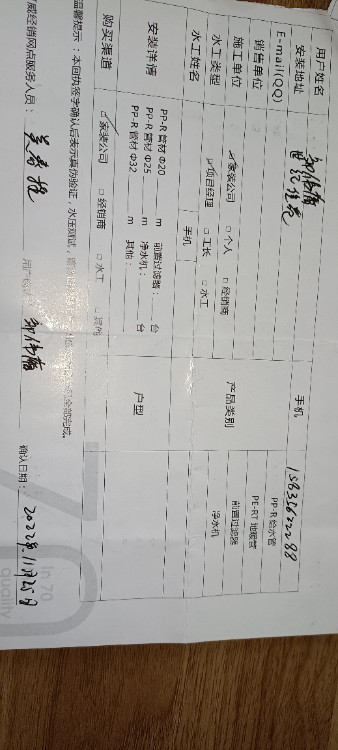 用户姓名 手机 15835622288
安装地址 世纪佳苑
E-mail(QQ)
销售单位 产品类别 PP-R 给水管
施工单位 ☑家装公司 □个人 □经销商 PE-RT 地暖管
水工类型 ☑项目经理 □工长 □水工 前置过滤器
水工姓名 手机 净水机
安装详情 PP-R 管材 Φ20 m 前置过滤器: 台 户型
PP-R 管材 Φ25 m 净水机: 台
PP-R 管材 Φ32 m 其他:
购买渠道 ☑家装公司 □经销商 □水工 □其他
温馨提示:本回执签字确认后表示真伪验证,水压测试,
全部完成。
经销网点服务人员: 确认日期: 2022年11月25日
In 70
quality